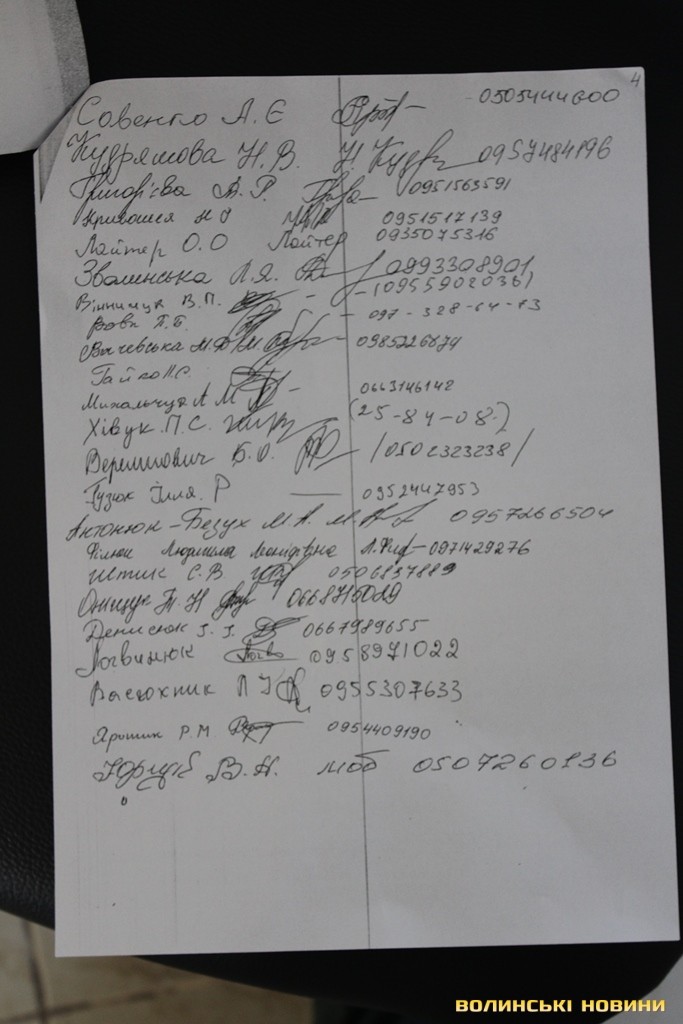 4
Совенко Л. Є 0505444600
Кудрямова Н. В. Н Кудр 0957484196
Григор'єва А. Р. 0951563591
Кривошея Н 0951517139
Лайтер О. О Лайтер 0935075316
Зваминська Л. Я. 0993308901
Віннищук В. П. (0955902036)
Вова Т. Б. 097-328-64-73
М 0985226674
Гайко Н С.
Михальчук А М 0663146142
Хівук П. С. (25-84-08)
Веремкович Б. О. /0502323238/
Гузюк Ілля. Р 0952447953
Антонюк-Безух М. А. 0957266504
Філюк Людмила Леонідівна Л. Філ 0971429276
С. В. 0506837889
Онищук Т. Н 0668715029
Денисюк І. І. 0667989655
Логвинюк 0958971022
Васюхник Л І 0955307633
Ярошик Р. М. 0954409190
В. Н. моб 0507260136
ВОЛИНСЬКІ НОВИНИ